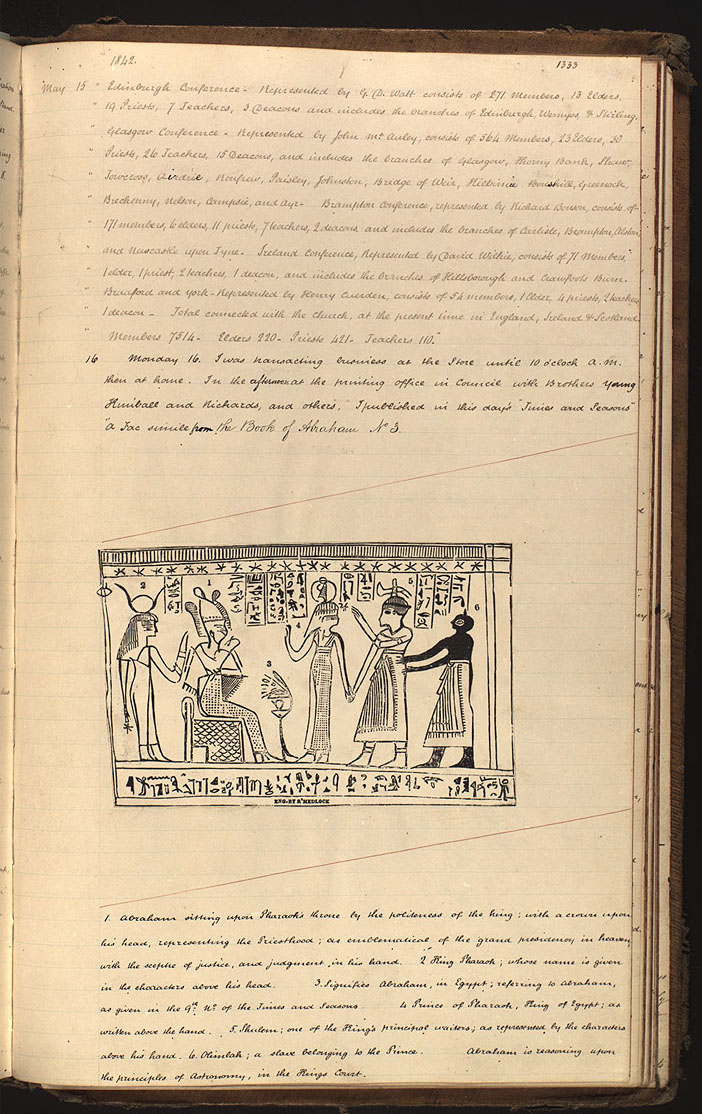 1842.
1333
May 15 " Edinburgh Conference - Represented by G. D. Watt consists of 271 Members, 13 Elders,
" 19 Priests, 7 Teachers, 3 Deacons and includes the branches of Edinburgh, Wemyss, & Stirling.
" Glasgow Conference - Represented by John Mc Auley, consists of 564 Members, 23 Elders, 30
" Priests, 26 Teachers, 15 Deacons, and includes the branches of Glasgow, Thorny Bank, Shaw-
" Towcross, Airdrie, Renfrew, Paisley, Johnston, Bridge of Weir, Kilbirnie Bonshill, Greenock,
" Brechenny, Nelson, Campsie, and Ayr - Brampton Conference, represented by Richard Benson, consists of
" 171 members, 6 elders, 11 priests, 7 teachers, 2 deacons and includes the branches of Carlisle, Brampton, Alston,
" and Newcastle upon Tyne - Ireland Confrence, Represented by David Wilkie, consists of 71 Members.
" 1 elder, 1 priest, 2 teachers, 1 deacon, and includes the branches of Hillsborough and Crawfoots Burn.
" Bradford and york - Represented by Henry Cuerden, consists of 54 members, 1 Elder, 4 priests, 2 teachers
" 1 deacon - Total connected with the church, at the present time in England, Ireland & Scotland
" Members 7514 - Elders 220 - Priests 421 - Teachers 110."
16 Monday 16. I was transacting business at the Store until 10 o'clock A. M.
" then at home. In the afternoon at the printing office in Council with Brothers Young
" Kimball and Richards, and others. I published in this day's "Times and Seasons"
" a Fac simile from the Book of Abraham No 3.
2
1
5
6
4
3
ENG. BY R. HEDLOCK
1. Abraham sitting upon Pharaoh's throne by the politeness of the King; with a crown upon
his head, representing the Priesthood; as emblematical of the grand presidency in heaven;
with the sceptre of justice, and judgment in his hand. 2 King Pharaoh; whose name is given
in the characters above his head. 3. Signifies Abraham, in Egypt; referring to Abraham,
as given in the 9th No of the Times and Seasons. 4 Prince of Pharaoh, King of Egypt; as
written above the hand. 5. Shulem; one of the King's principal waiters; as represented by the characters
above his hand. 6. Olimlah; a slave belonging to the Prince. Abraham is reasoning upon
the principles of Astronomy, in the Kings Court.